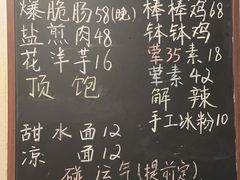 爆脆肠58(晚)
盐煎肉48
花洋芋16
顶饱
甜水面12
凉面12
棒棒鸡68
钵钵鸡
荤35素18
荤素42
解辣
手工冰粉10
碰运气(提前定)